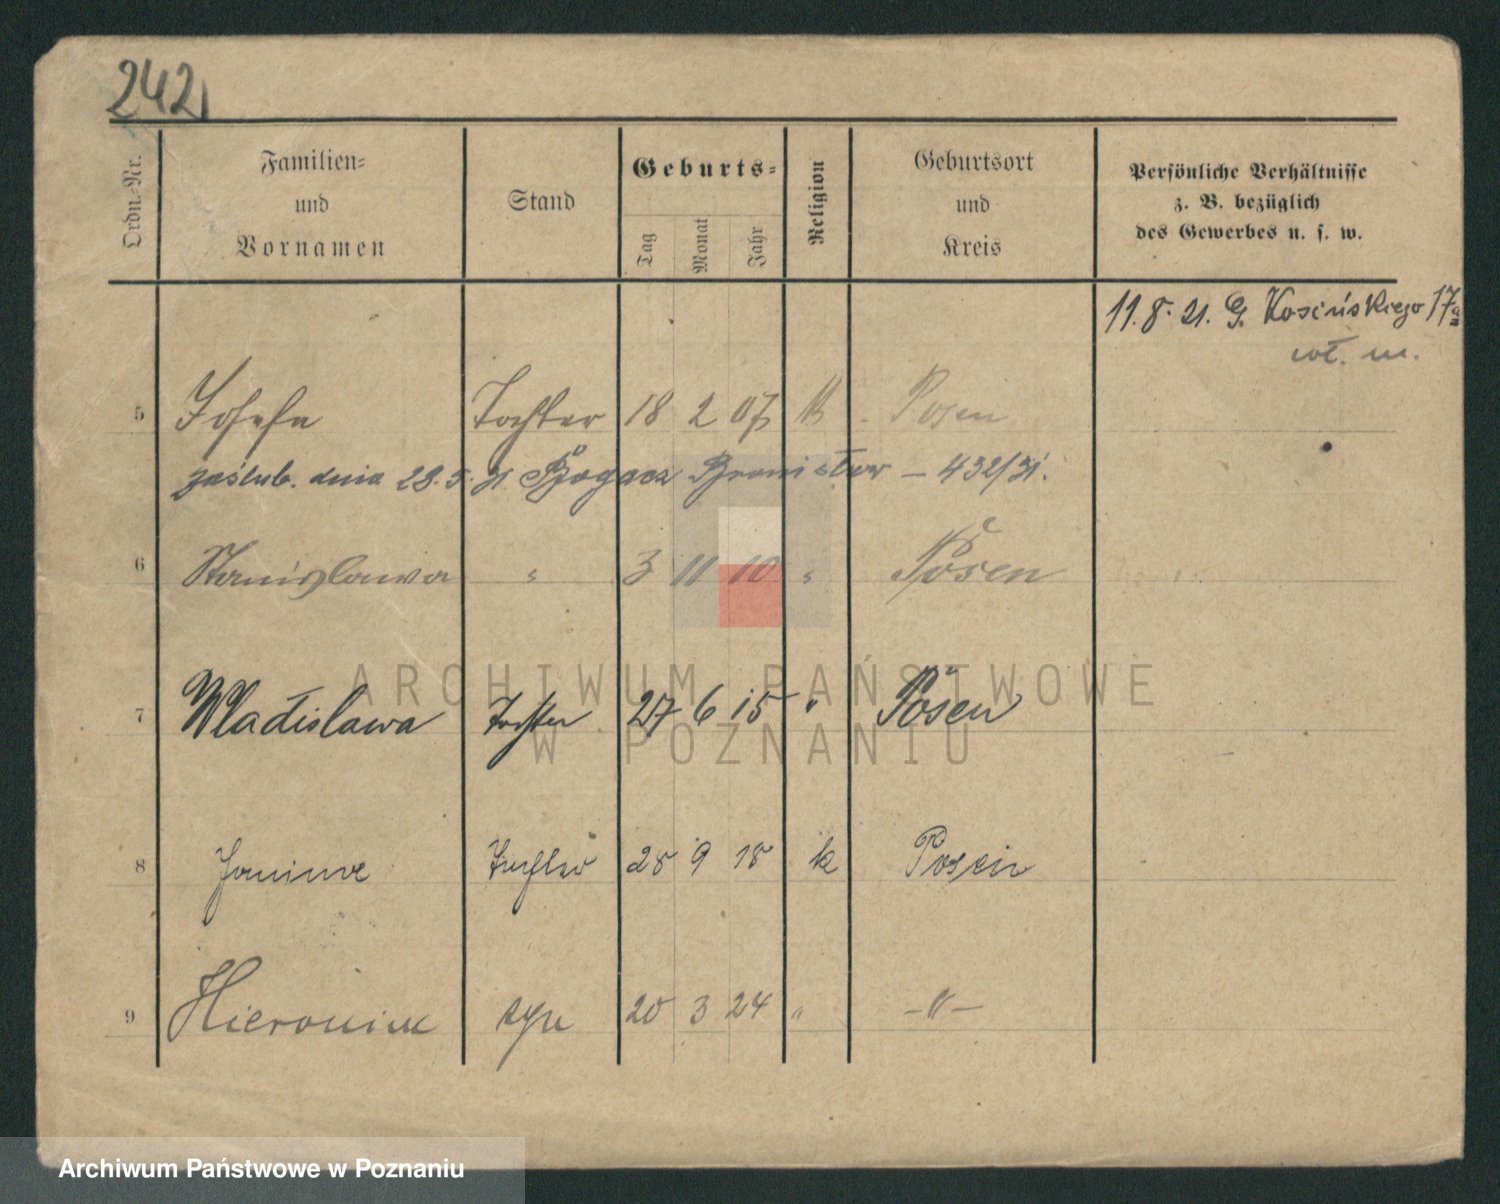 242
Ordn.-Nr.
Familien-
und
Vornamen
Stand
Geburts-
Tag
Monat
Jahr
Religion
Geburtsort
und
Kreis
Persönliche Verhältnisse
z. B. bezüglich
des Gewerbes u. s. w.
11. 8. 21. G. Kosińskiego 17a
wł. m.
5 Josefa Tochter 18 2 07 k Posen
zaślub. dnia 28. 5. 31 Bogacz Bronisław – 432/31.
6 Stanislawa " 3 11 10 " Posen
7 Wladislawa Tochter 27 6 15 " Posen
8 Janina Tochter 28 9 18 k Posen
9 Hieronim syn 20 3 24 " –"–
ARCHIWUM PAŃSTWOWE
W POZNANIU
Archiwum Państwowe w Poznaniu